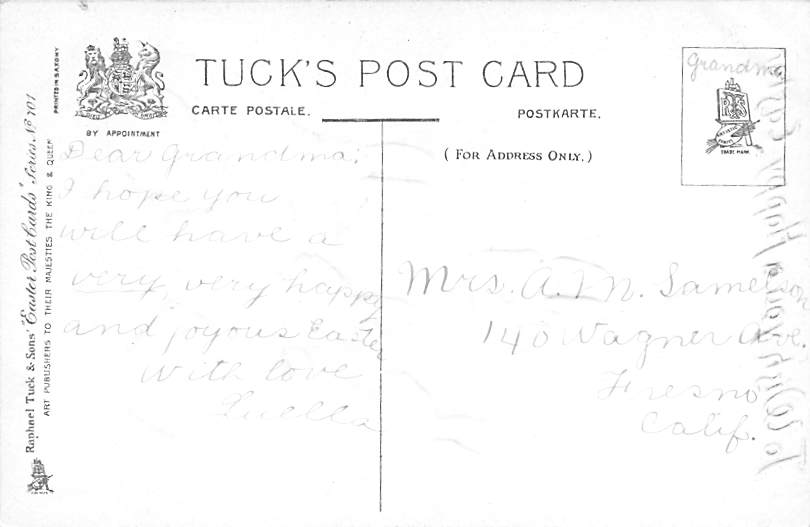 TUCK'S POST CARD
CARTE POSTALE.
POSTKARTE.
BY APPOINTMENT
(FOR ADDRESS ONLY.)
PRINTED IN SAXONY
Raphael Tuck & Sons' "Easter Post Cards" Series. No 701
ART PUBLISHERS TO THEIR MAJESTIES THE KING & QUEEN
Grandma
TRADE MARK
Dear Grandma:
I hope you
will have a
very, very happy
and joyous Easter
With love
Luella
Mrs. A. M. Samelson
140 Wagner Ave.
Fresno
Calif.